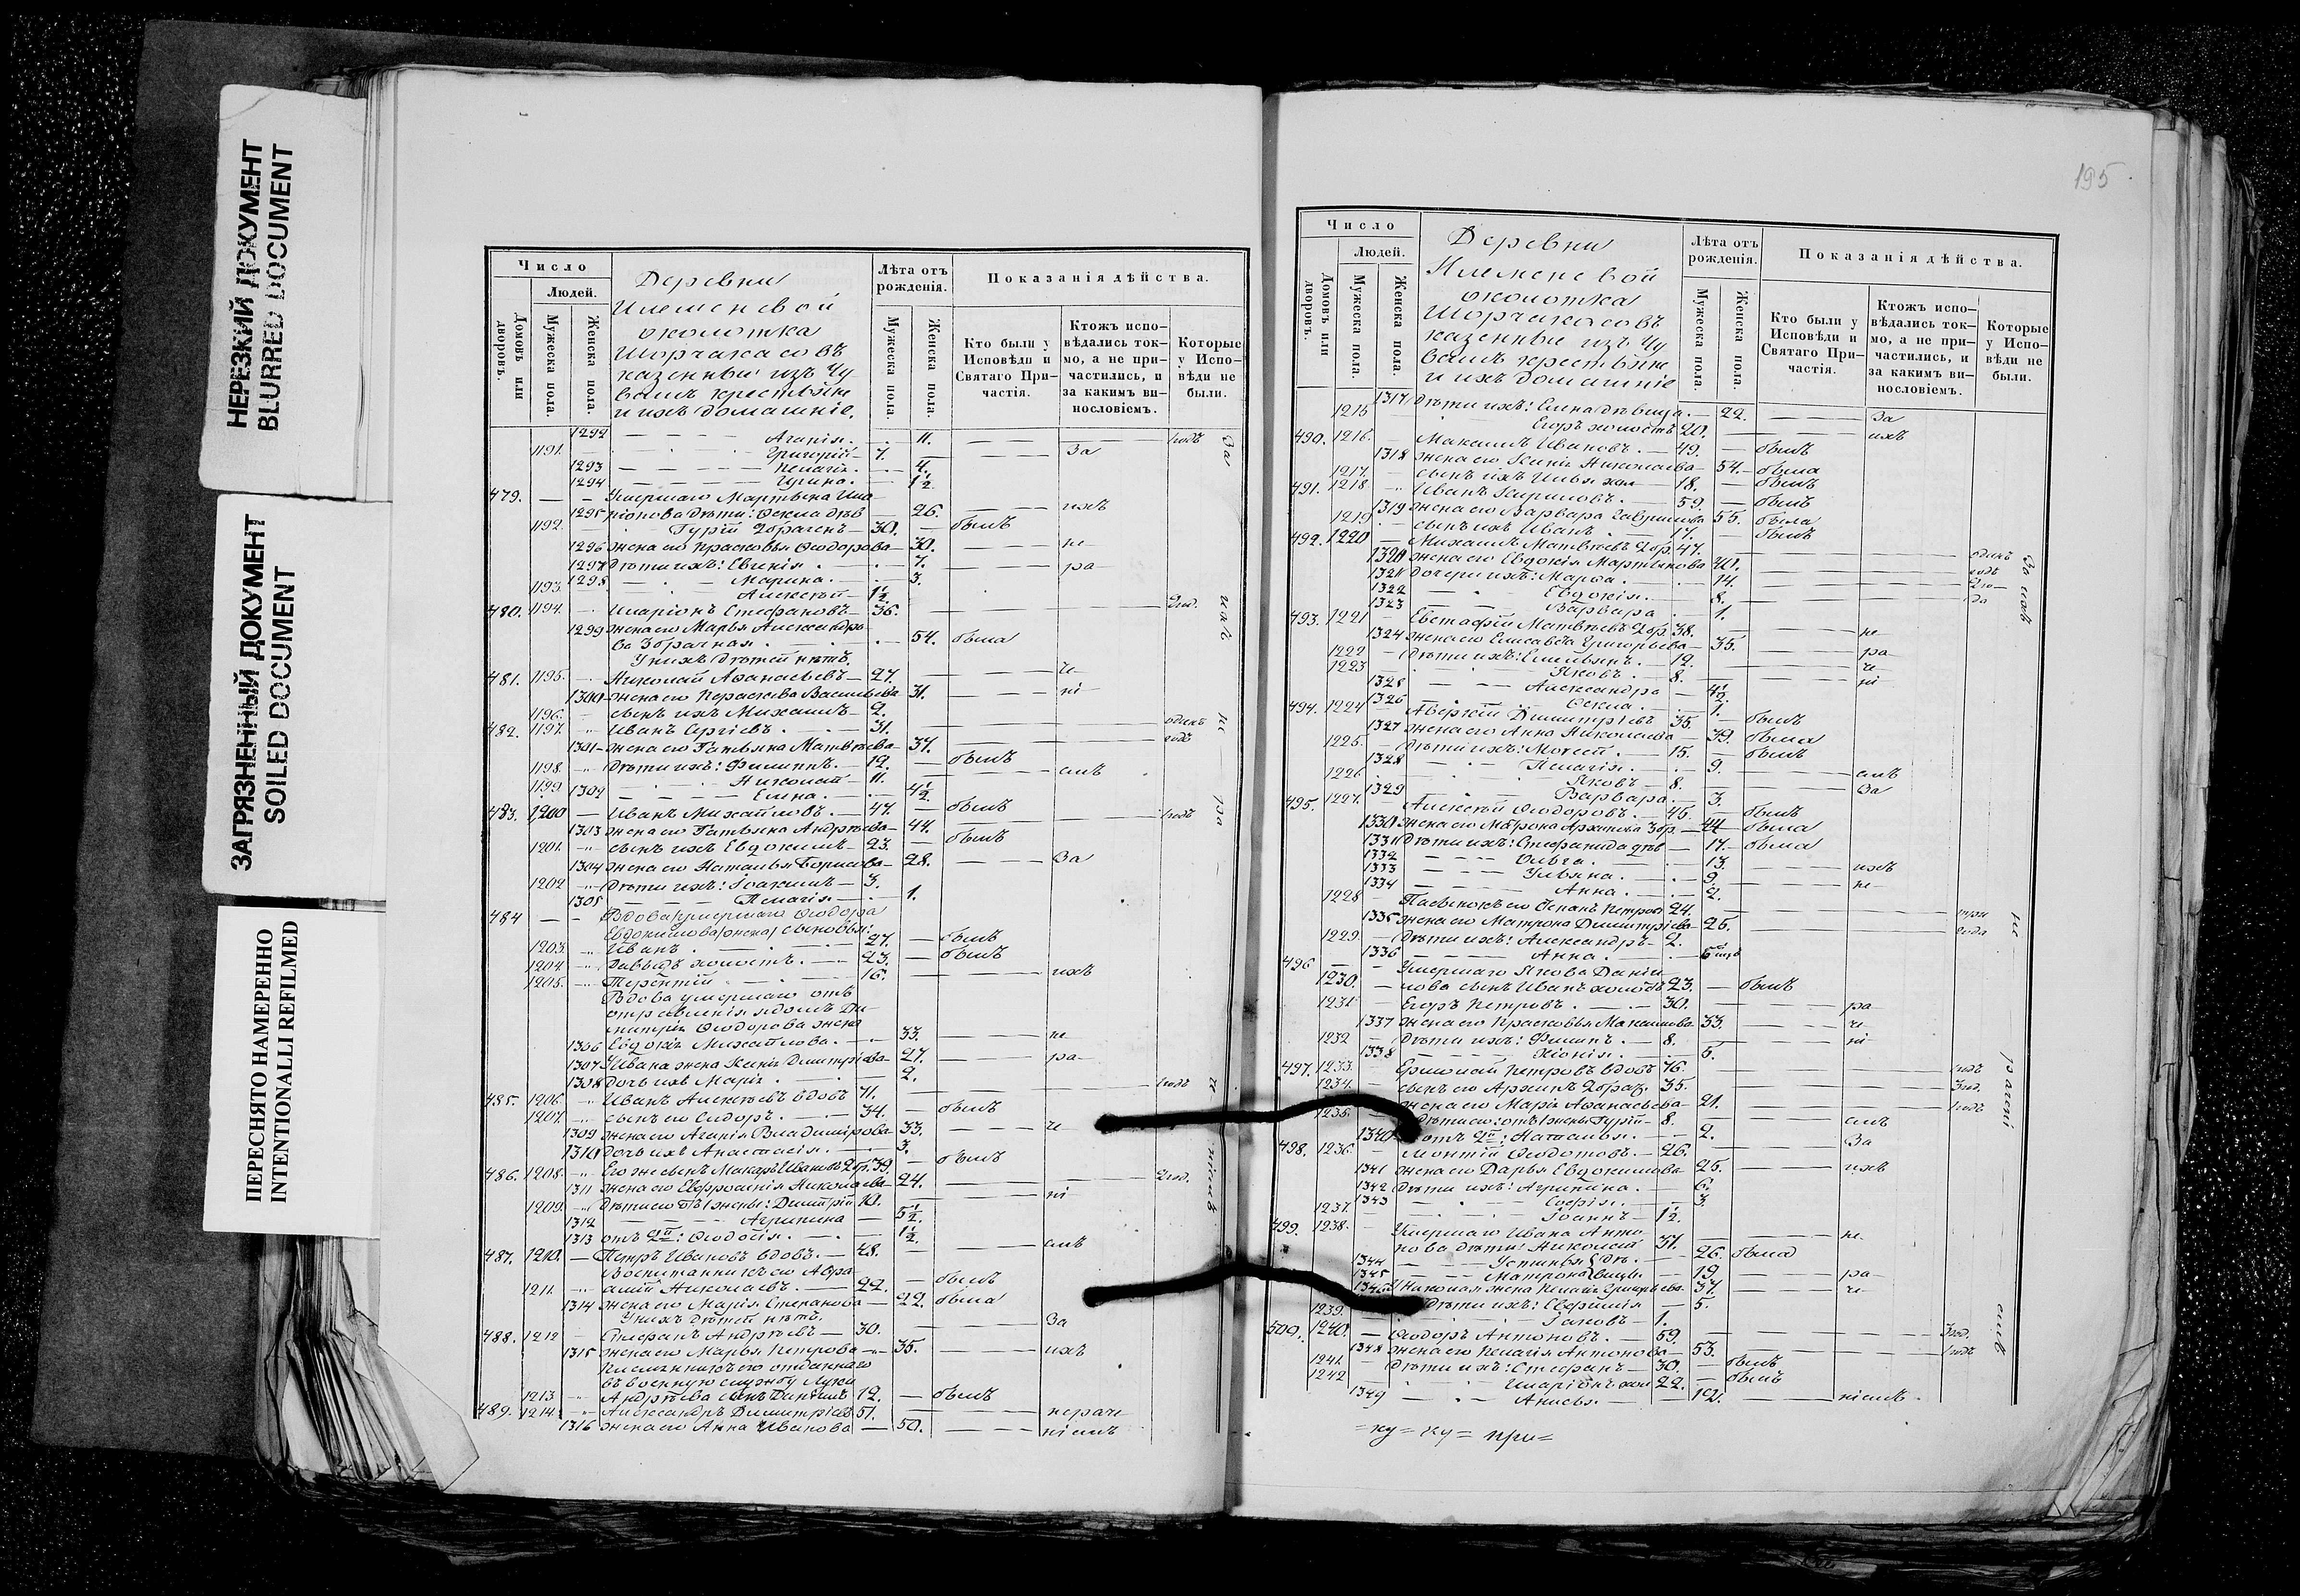 НЕРЕЗКИЙ ДОКУМЕНТ
BLURRED DOCUMENT
ЗАГРЯЗНЕННЫЙ ДОКУМЕНТ
SOILED DOCUMENT
ПЕРЕСНЯТО НАМЕРЕННО
INTENTIONALLI REFILMED
Число
Людей.
Домовъ или дворовъ.
Мужеска пола.
Женска пола.
Деревни
околотка
казенные изъ Чу
вашъ крестьяне
и ихъ домашніе.
Лѣта отъ рожденія.
Мужеска пола.
Женска пола.
Показанія дѣйства.
Кто были у Исповѣди и Святаго При-частія.
Ктожъ испо-вѣдались ток-мо, а не при-частились, и за какимъ ви-нословіемъ.
Которые у Испо-вѣди не были.
1292 Агапія. 11. 1 годъ
1191. Григорій 7. За
1293 Пелагія. 4.
1294 Ирина. 1½
479. Умершаго Мартына Ила
1295 ріонова дѣти: Ѳекла дѣв 26. ихъ
1192. Гурій 2 браченъ 30. былъ
1296 жена его Прасковья Ѳеодорова 30. не
1297 дѣти ихъ: Евгенія 7. ра
1298 Марина. 3.
1193. Алексѣй 1½
480. 1194. Иларіонъ Стефановъ 36. 2 год.
1299 жена его Марья Александро
ва 3 брачная 54. была
У нихъ дѣтей нѣтъ.
481. 1195. Николай Аѳанасьевъ 27. че
1300 жена его Параскева Васильева 31. ні
1196. сынъ ихъ Михаилъ 2.
482. 1197. Иванъ Сергіевъ 31. одинъ
1301 жена его Татьяна Матвѣева 37. годъ
1198. дѣти ихъ: Филиппъ. 12. былъ
1199 Николай 11. емъ
1302 Елена 4½
483. 1200 Иванъ Михайловъ. 47. былъ
1303 жена его Татьяна Андрѣева 44. 1 годъ
1201. сынъ ихъ Евдокимъ 23. былъ
1304 жена его Наталья Борисова 28. За
1202 дѣти ихъ: Іоакимъ 3.
1305 Пелагія 1.
484 Вдова умершаго Ѳеодора
Евдокимова жена, сыновья:
1203. Иванъ 27. былъ
1204. Давыдъ холостъ. 23. былъ
1205. Терентій 16. ихъ
Вдова умершаго отъ
отравленія ядомъ Ди
митрія Ѳеодорова жена
1306 Евдокія Михайлова. 33. не
1307 У Ивана жена Ксенія Димитріева 27. ра
1308 дочь ихъ Марія 2.
485. 1206. Иванъ Алексѣевъ вдовъ 71. 1 годъ
1207. сынъ его Сидоръ. 34. былъ
1309 жена его Агапія Владимірова 33. че
1310 дочь ихъ Анастасія. 3.
486. 1208. Его же сынъ Макаръ Ивановъ 2 бр. 39. былъ
1311 жена его Евфросинія Николаева 24. 2 год.
1209. дѣти его отъ 1 жены: Димитрій 10. ні
1312 Агрипина 5½
1313 отъ 2й: Ѳеодосія. 1½
487. 1210. Петръ Ивановъ вдовъ. 48. емъ
Воспитанникъ его Авра
1211. амій Николаевъ. 22. былъ
1314 жена его Марія Степанова 22. была
У нихъ дѣтей нѣтъ.
488. 1212 Стефанъ Андрѣевъ 30. За
1315 жена его Марья Петрова 35. ихъ
Племянникъ его отданнаго
въ военную службу Луки
1213. Андрѣева сынъ 12. былъ
489. 1214. Александръ Димитріевъ 51. нераче
1316 жена его Анна Иванова 50. ніемъ
195
Число
Людей.
Домовъ или дворовъ.
Мужеска пола.
Женска пола.
Деревни
околотка
казенные изъ Чу
вашъ крестьяне
и ихъ домашніе
Лѣта отъ рожденія.
Мужеска пола.
Женска пола.
Показанія дѣйства.
Кто были у Исповѣди и Святаго При-частія.
Ктожъ испо-вѣдались ток-мо, а не при-частились, и за какимъ ви-нословіемъ.
Которые у Испо-вѣди не были.
1317 дѣти ихъ: Елена дѣвица. 22. За
1215 Егоръ холостъ 20. ихъ
490. 1216. Максимъ Ивановъ. 49. былъ
1318 жена его Ксенія Николаева 54. была
1217. сынъ ихъ Илья хол 18. былъ
491. 1218 Иванъ Кириловъ. 59. былъ
1319 жена его Варвара Гаврилова 55. была
1219 сынъ ихъ Иванъ 17. былъ
492. 1220 Михаилъ Матвѣевъ 2 бр. 47. одинъ
1320 жена его Евдокія Мартынова 40. годъ
1321 дочери ихъ: Марѳа. 14. 2 го
1322 Евдокія. 8. да
1323 Варвара 1.
493. 1221 Евстафій Матвѣевъ 2 бр. 38. не
1324 жена его Елисавета Григорьева 35. ра
1222 дѣти ихъ: Емельянъ. 12. че
1223 Яковъ 8. ні
1325 Александра 4½
1326 Ѳекла 1.
494. 1224 Аверкій Димитріевъ 35. былъ
1327 жена его Анна Николаева 39. была
1225. дѣти ихъ: Моѵсей. 15. былъ
1328 Пелагія. 9. емъ
1226 Яковъ 8. За
1329 Варвара. 3.
495. 1227. Алексѣй Ѳеодоровъ. 45. былъ
1330 жена его Матрона Архипова 3 бр. 44 была
1331 дѣти ихъ: Стефанида дѣв 17. была
1332 Ольга. 13.
1333 Ульяна. 9. ихъ
1334 Анна. 2. не
1228 Пасынокъ его Степанъ Петровъ 24. три
1335 жена его Матрона Димитріева 25. года
1229. дѣти ихъ: Александръ 2.
1336 Анна.
496 Умершаго Якова Даніи
1230. лова сынъ Иванъ холостъ 23. былъ
1231 Егоръ Петровъ. 30. ра
1337 жена его Прасковья Максимова 33. че
1232 дѣти ихъ: Филипъ. 8. ні
1338 Хіонія. 5.
497. 1233. Ермолай Петровъ вдовъ 76. годъ
1234. сынъ его Архипъ 2 брач. 35. 3 год.
жена его Марія Аѳанасьева 21. 1 годъ
1235. дѣти его: отъ 1 жены Гурій 8. емъ
1340 отъ 2й: Наталья. 2. За
498. 1236. Монтій Ѳеодотовъ. 26.
1341 жена его Дарья Евдокимова 25. ихъ
1342 дѣти ихъ: Агрипина. 6.
1343 Софія. 3.
1237. Іоаннъ 1½
499. 1238. Умершаго Ивана Анто
нова дѣти Николай 31. не
1344 Устинья дѣ 26. была
1345 Матрона вицы. 19 ра
1346 У Николая жена Пелагія Григорьева 37. че
дѣти ихъ: Евфимія 5.
1239. Іаковъ 1.
509. 1240. Ѳеодоръ Антоновъ. 59. 3 год.
1348 жена его Пелагія Антонова 53. 1 годъ
1241. дѣти ихъ: Стефанъ 30. былъ
1242 Иларіонъ хол 22. былъ
1349 Анисья 12. ніемъ